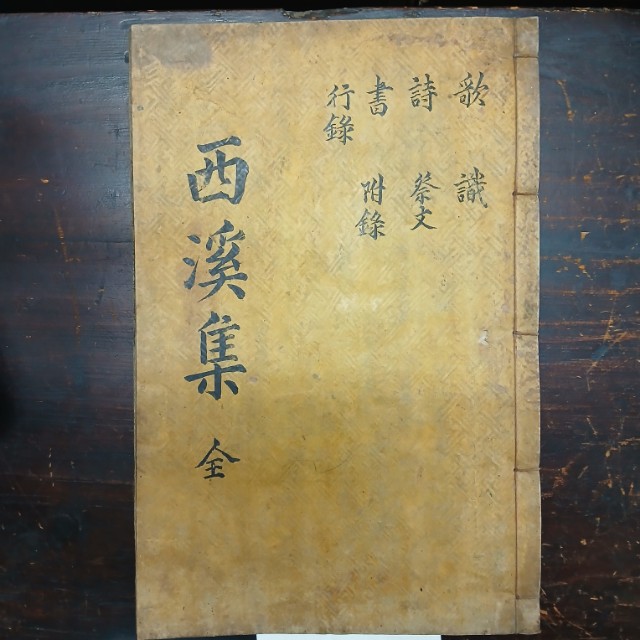 歌 識
詩 祭文
書 附錄
行錄
西溪集 全